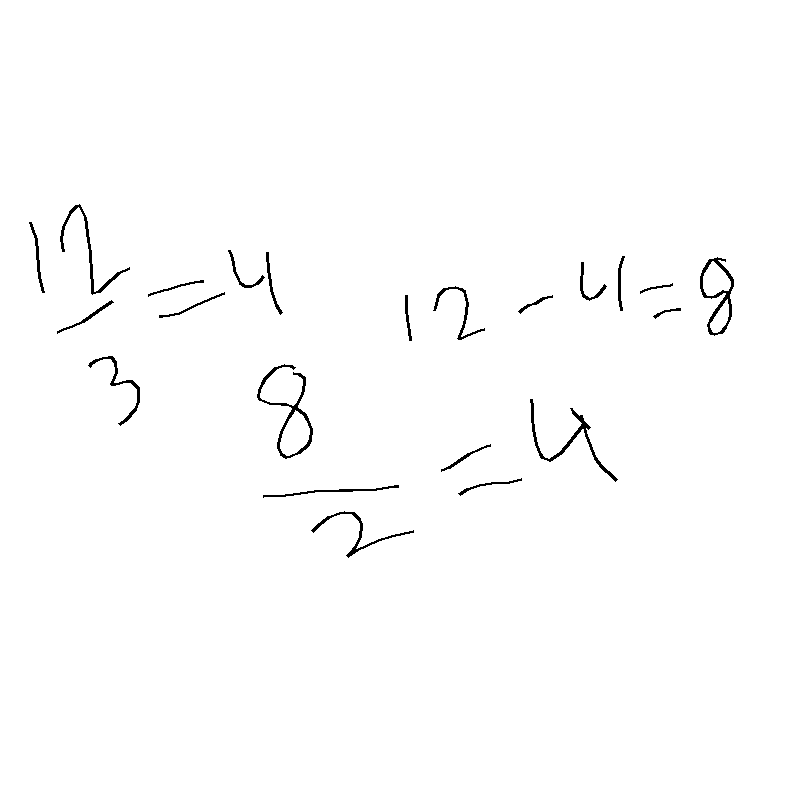 12/3 = 4
12 - 4 = 8
8/2 = 4